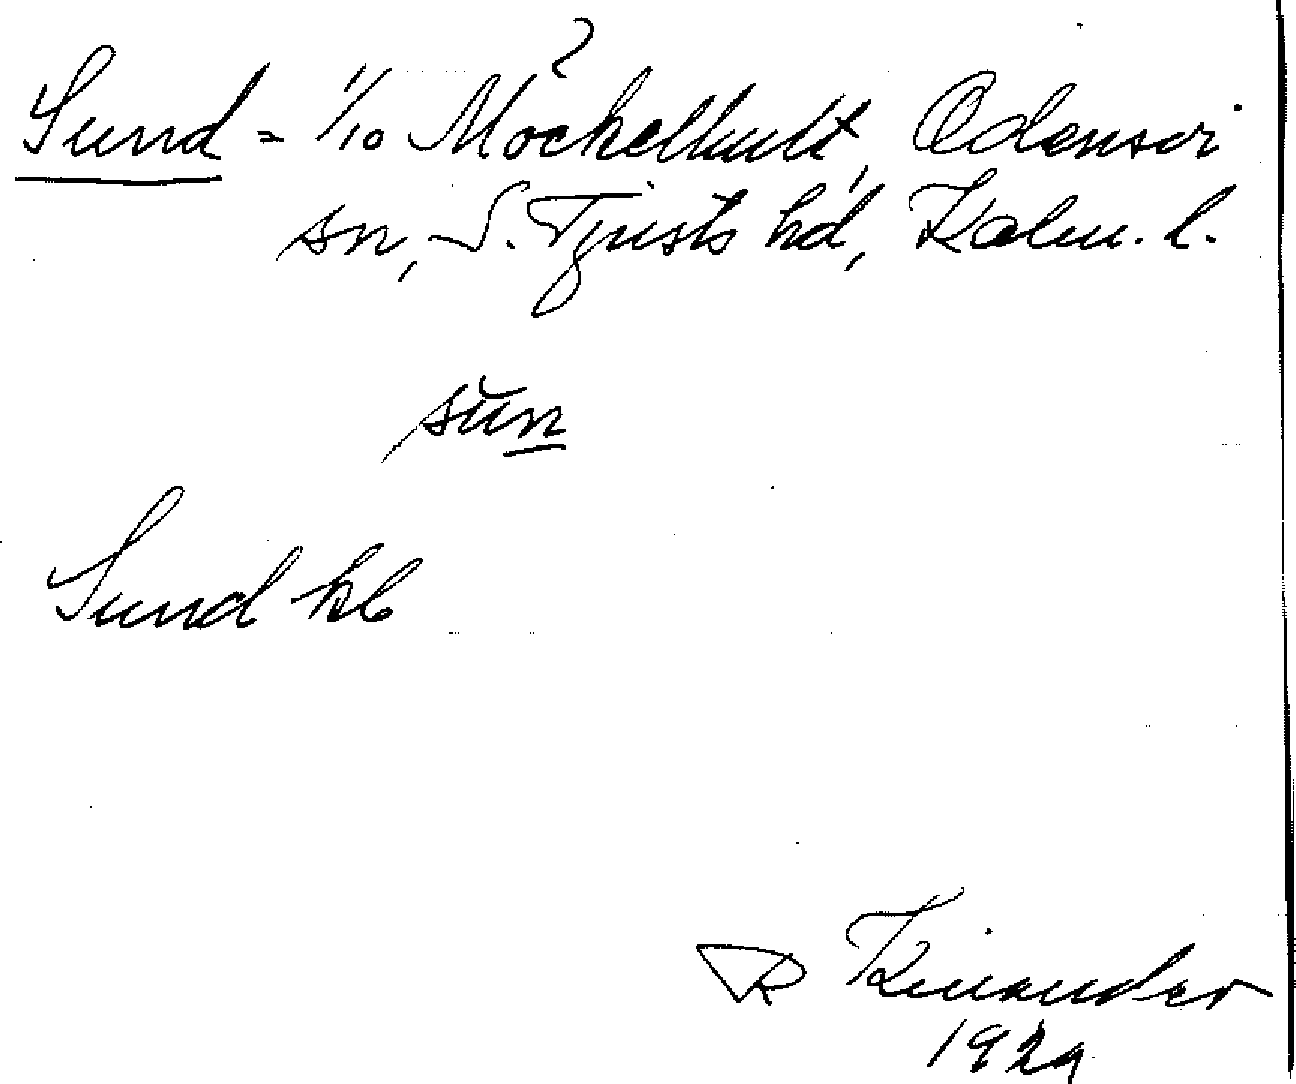 Sund = 1/10 Möckelhult, Odensvi
sn, S. Tjusts hd, Kalm. l.
sŭn
Sund kb
R Kinander
1929